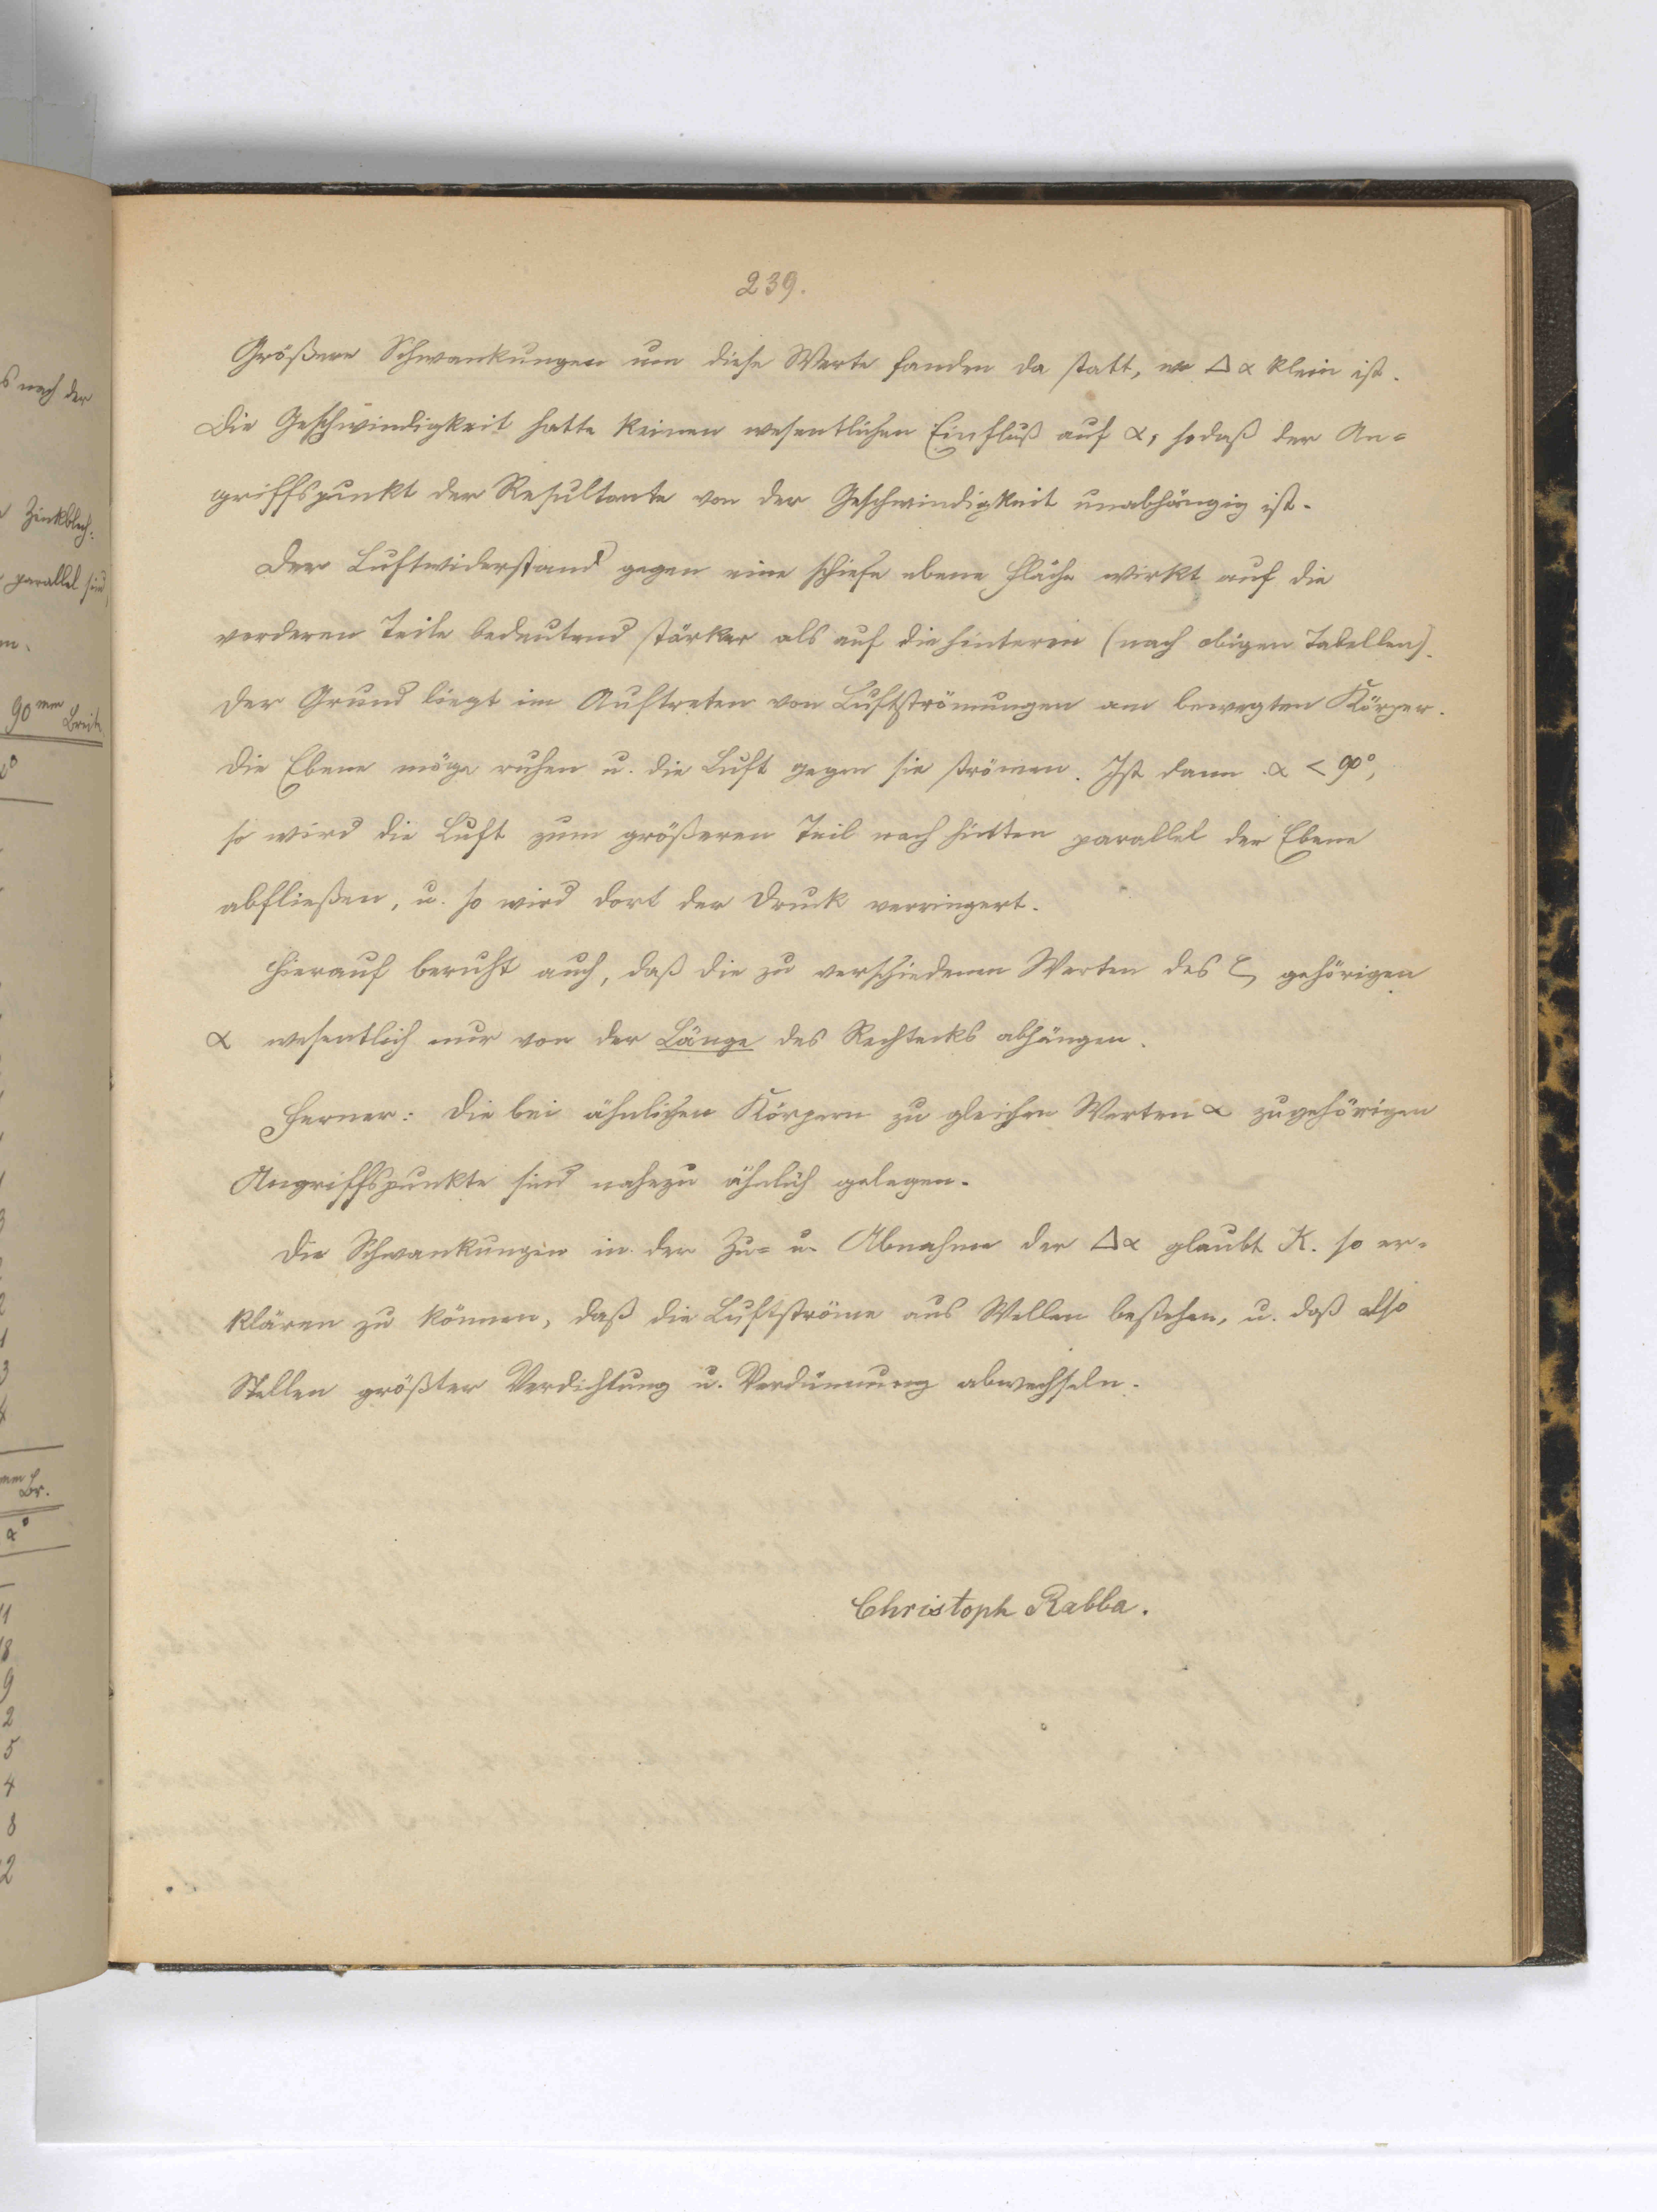 239.
Größere Schwankungen um diese Werte fanden da statt, wo Δα klein ist.
Die Geschwindigkeit hatte keinen wesentlichen Einfluß auf α, sodaß der An=
griffspunkt der Resultante von der Geschwindigkeit unabhängig ist.
Der Luftwiderstand gegen eine schiefe ebene Fläche wirkt auf die
vorderen Teile bedeutend stärker als auf die hinteren (nach obigen Tabellen).
Der Grund liegt im Auftreten von Luftströmungen am bewegten Körper.
Die Ebene möge ruhen u. die Luft gegen sie strömen. Ist dann α < 90°,
so wird die Luft zum größeren Teil nach hinten parallel der Ebene
abfließen, u. so wird dort der Druck verringert.
Hierauf beruht auch, daß die zu verschiedenen Werten des ζ gehörigen
α wesentlich nur von der Länge des Rechtecks abhängen.
Ferner: Die bei ähnlichen Körpern zu gleichen Werten α zugehörigen
Angriffspunkte sind nahezu ähnlich gelegen.
Die Schwankungen in der Zu= u. Abnahme der Δα glaubt K. so er=
klären zu können, daß die Luftströme aus Wellen bestehen, u. daß also
Stellen größter Verdichtung u. Verdünnung abwechseln.
Christoph Rabba.
s nach der
Zinkblech:
parallel sind,
90 mm Breite
mm Br.
α°
11
18
9
2
5
4
8
2